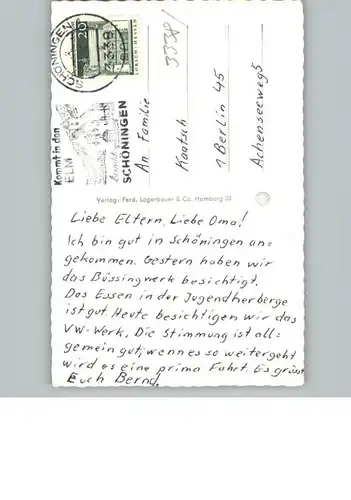 SCHÖNINGEN
20
3338
LORSCH HESSEN
33389
Kommt in den
ELM
SCHÖNINGEN
An Familie
Kaatsch
1 Berlin 45
Achenseeweg 5
Verlag: Ferd. Lagerbauer & Co. Hamburg 23
Liebe Eltern, Liebe Oma!
Ich bin gut in Schöningen an=
gekommen. Gestern haben wir
das Büssingwerk besichtigt.
Das Essen in der Jugendherberge
ist gut. Heute besichtigen wir das
VW-Werk. Die Stimmung ist all=
gemein gut, wenn es so weitergeht
wird es eine prima Fahrt. Es grüsst
Euch Bernd.